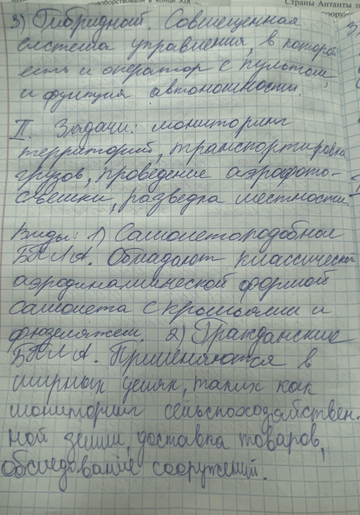 Страны Антанты и
3) Гибридной. Совмещенная
система управления, в которой
есть и оператор с пультом,
и функция автономности.
II. Задачи: мониторинг
территорий, транспортировка
грузов, проведение аэрофото-
съёмки, разведка местности
Виды: 1) Самолетоподобное
БПЛА. Обладают классической
аэродинамической формой
самолета с крыльями и
фюзеляжем. 2) Гражданские
БПЛА. Применяются в
мирных целях, таких как
мониторинг сельскохозяйствен-
ной земли, доставка товаров,
обследование сооружений.